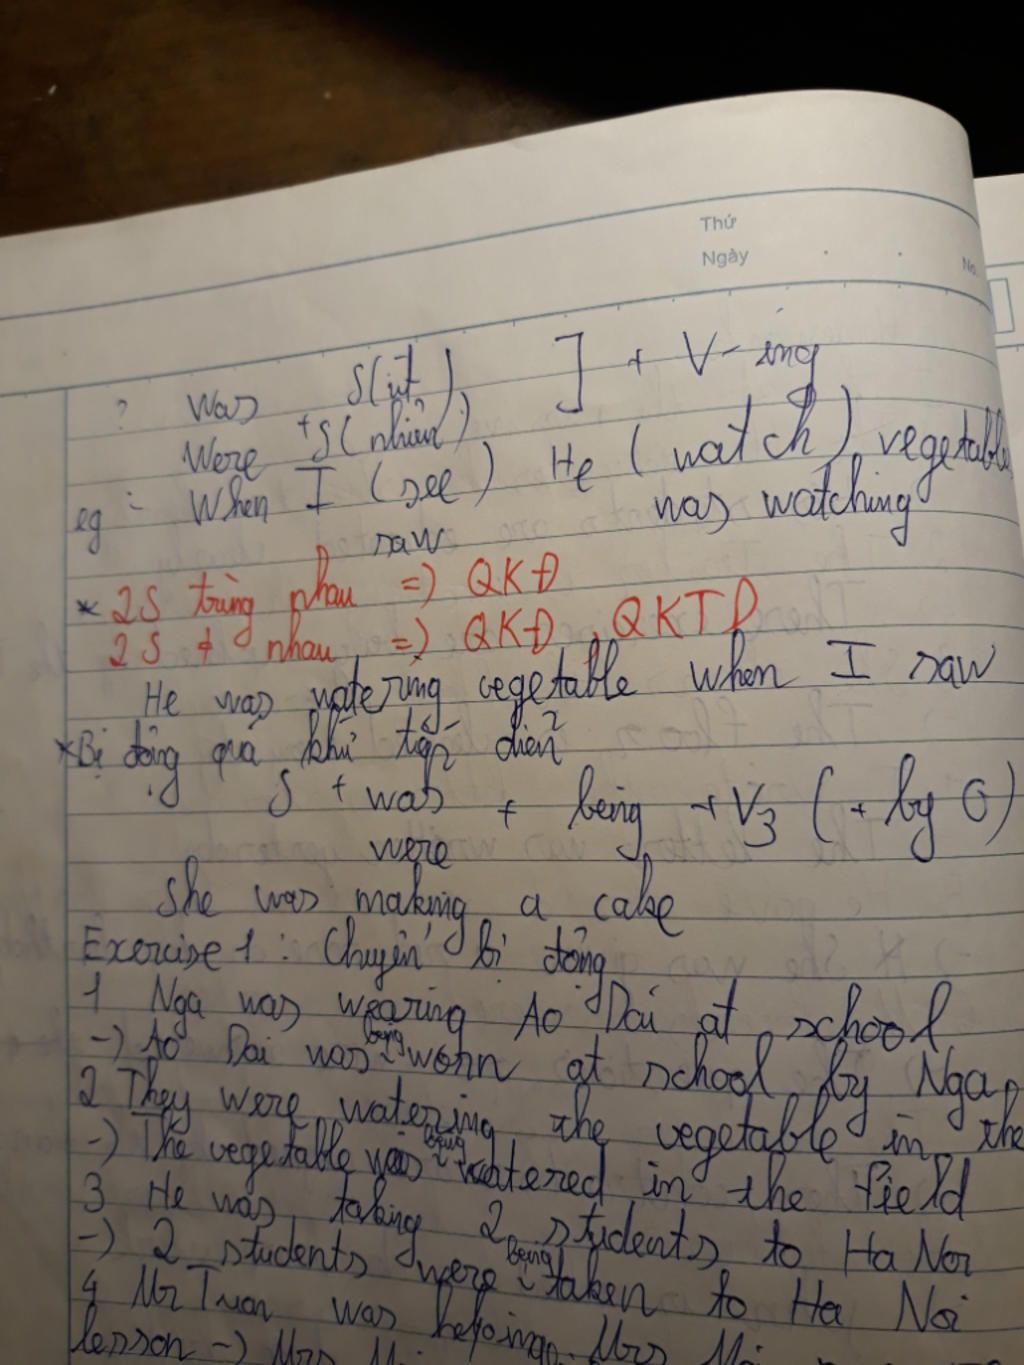 Thứ
Ngày
No.
? Was S(ít) ] + V-ing
Were + S(nhiều)
eg: When I (see) He (watch) vegetable
saw was watching
* 2S trùng nhau => QKĐ
2S ≠ nhau => QKĐ, QKTD
He was watering vegetable when I saw
* Bị động quá khứ tiếp diễn
S + was + being + V3 (+ by O)
were
She was making a cake
Exercise 1: Chuyển bị động
1 Nga was wearing Ao Dai at school
-) Ao Dai was being worn at school by Nga
2 They were watering the vegetable in the
-) The vegetable was being watered in the field
3 He was taking 2 students to Ha Noi
-) 2 students were being taken to Ha Noi
4 Mr Tuan was helping Mrs
lesson -) Mrs